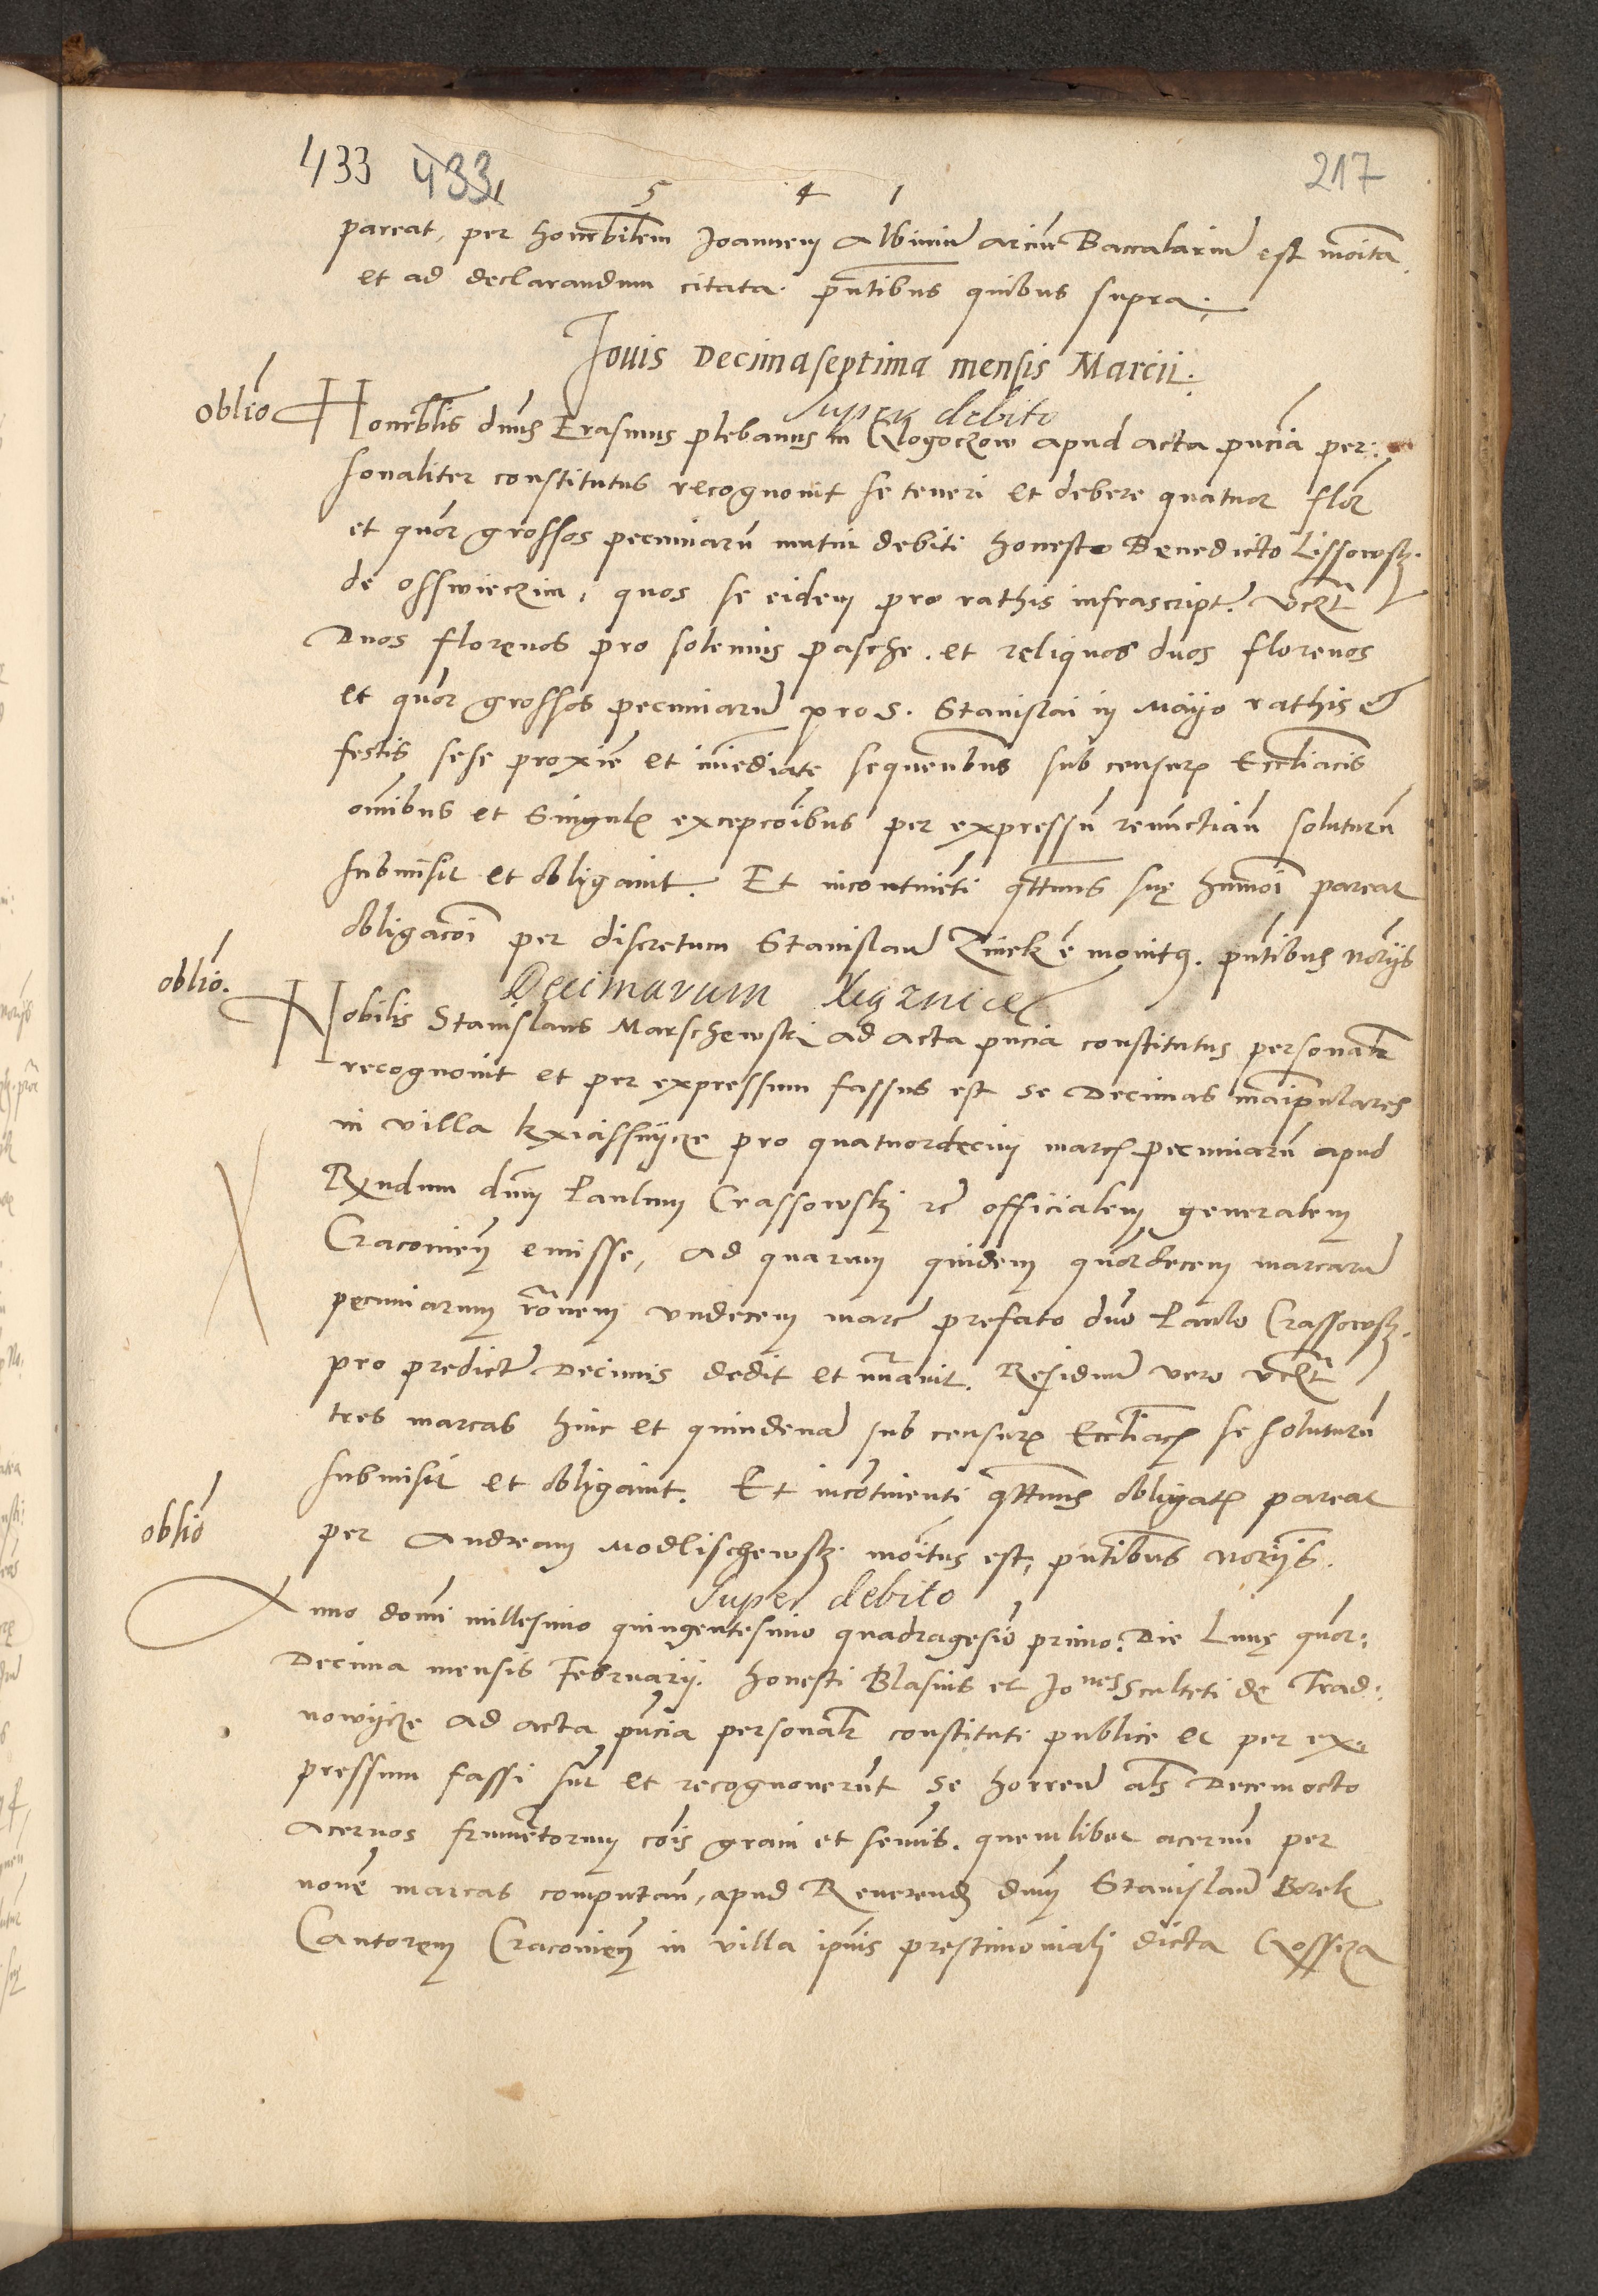 433 433 217
5 4 1
pareat, per honorbilem Joannem Albinum arcium Baccalarium est monita
et ad declarandum citata. pntibus quibus supra.
Jouis Decimaseptima mensis Marcii.
oblio
Super debito
Honorblis dnus Erasmus plebanus in Rogoczow apud acta pncia per:
sonaliter constitutus recognouit se teneri et debere quatuor flor
et quor grossos pecuniarum mutui debiti honesto Benedicto Lissowsky
de Osswieczim, quos se eidem pro rathis infrascript. vczt
Duos florenos pro solennis pasche. et reliquos duos florenos
et quor grossos pecuniarum pro S. Stanislai in Mayo rathis et
festis sese proxie et immediate sequentibus sub censuris Eccliacis
omibus et Singulis excepcoibus per expressum renuncians soluturum
submisit et obligauit. Et incontinenti qttnus sue hmoi pareat
obligacoi per discretum Stanislaum Zinek e monitus. pntibus noriis
oblio.
Decimarum
Nobilis Stanislaus Marschewski ad acta pncia constitutus personalr
recognouit et per expressum fassus est se Decimas manipulares
in villa Kxiassnycze pro quatuordecim marcis pecuniarum apud
Rxndum dnm Paulum Crassowsky etc officialem generalem
Cracoviens emisse, ad quarum quidem quordecem marcarum
pecuniarum ronem vndecem marc prefato dno Paulo Crassowsky
pro predictis Decimis dedit et nuauit. Residuum vero vczt
tres marcas hinc et quindenam sub censuris Eccliacis se soluturum
submisit et obligauit. Et incontinenti qttnus obligatis pareat
per Andream Modlischewsky monitus est, pntibus noriis.
oblio
Super debito
Anno domi millesimo quingentesimo quadragesio primo. Die Lune quor:
Decima mensis Februarij. honesti Blasius et Jones Sculteti de Trad:
nowycze ad acta pncia personalr constituti publice et per ex:
pressum fassi sut et recognouerunt se horreum als Decemocto
aceruos frumentorum cois grani et semis. quemlibet aceruum per
noue marcas computan, apud Reuerend dnm Stanislaum Borek
Cantorem Cracoviens in villa ipius prestimoniali dicta